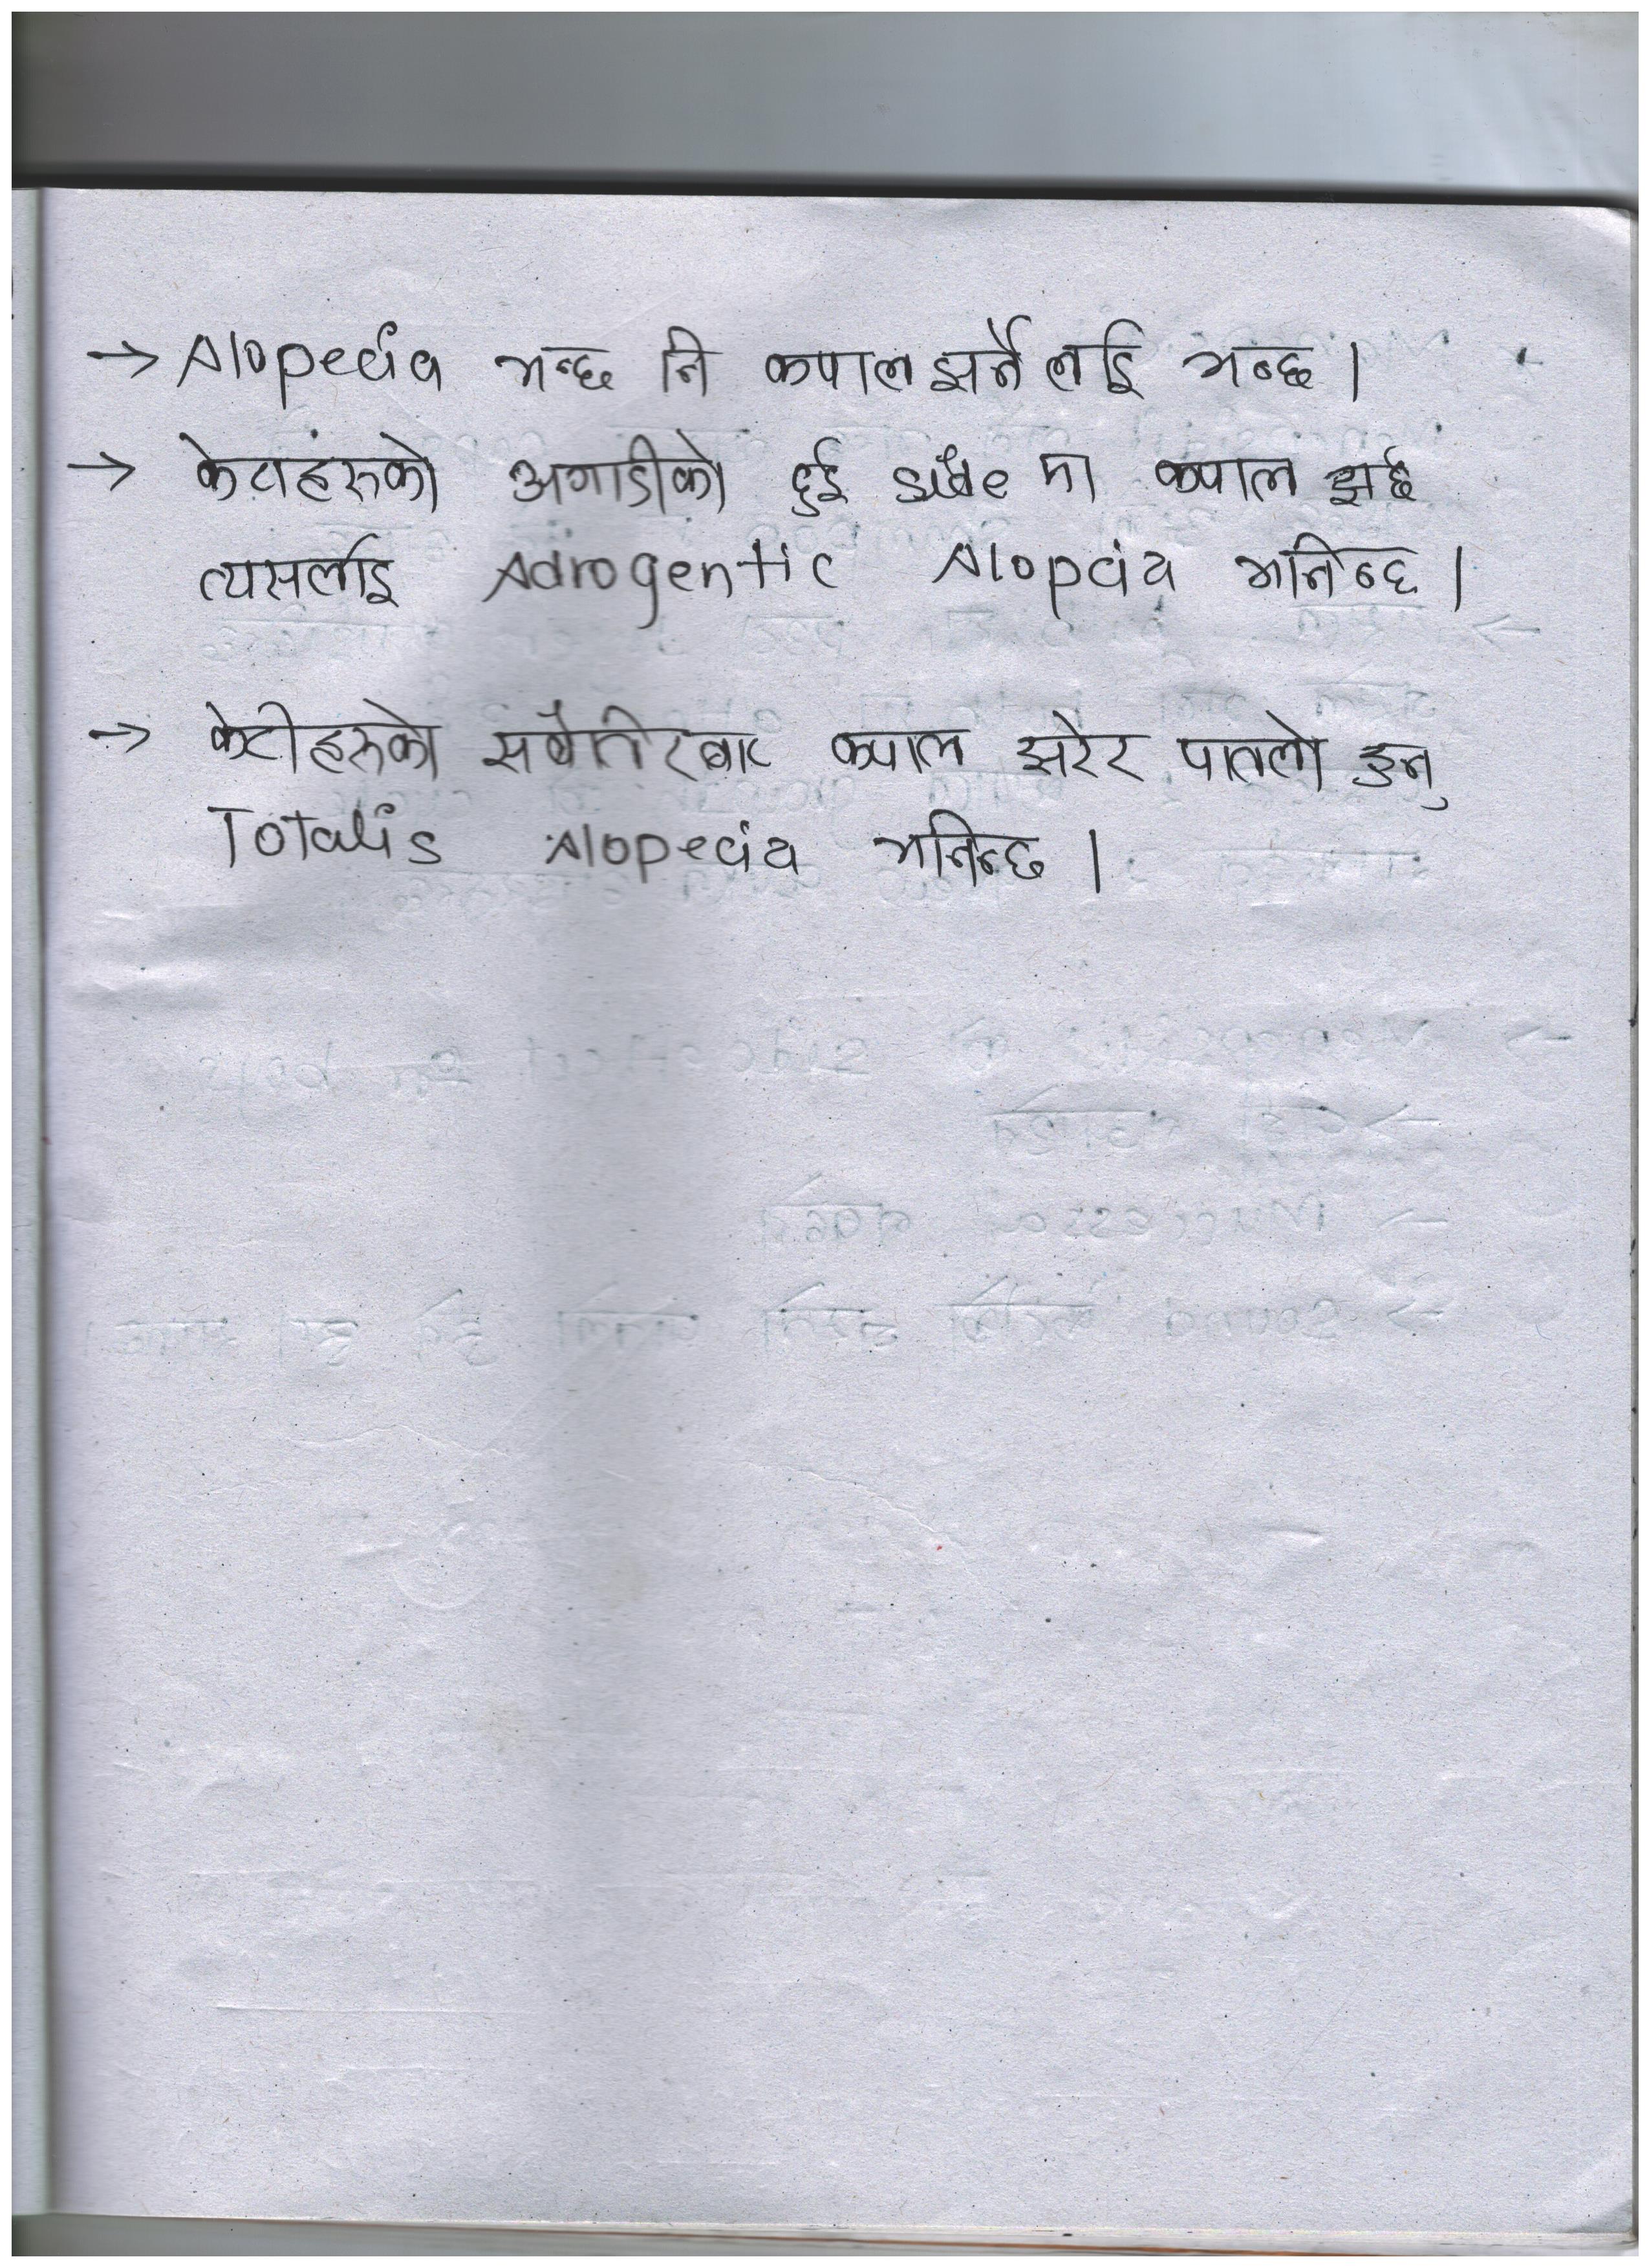 → Alopecia भन्छ नि कपाल झर्नेलाई भन्छ ।
→ केटाहंरुको अगाडीको दुई side मा कपाल झर्छ
त्यसर्लाइ Adrogentic Alopcia भनिन्छ ।
→ केटीहरुको सबैतिरबाट कपाल झरेर पातलो हुनु
Totalis Alopecia भनिन्छ ।